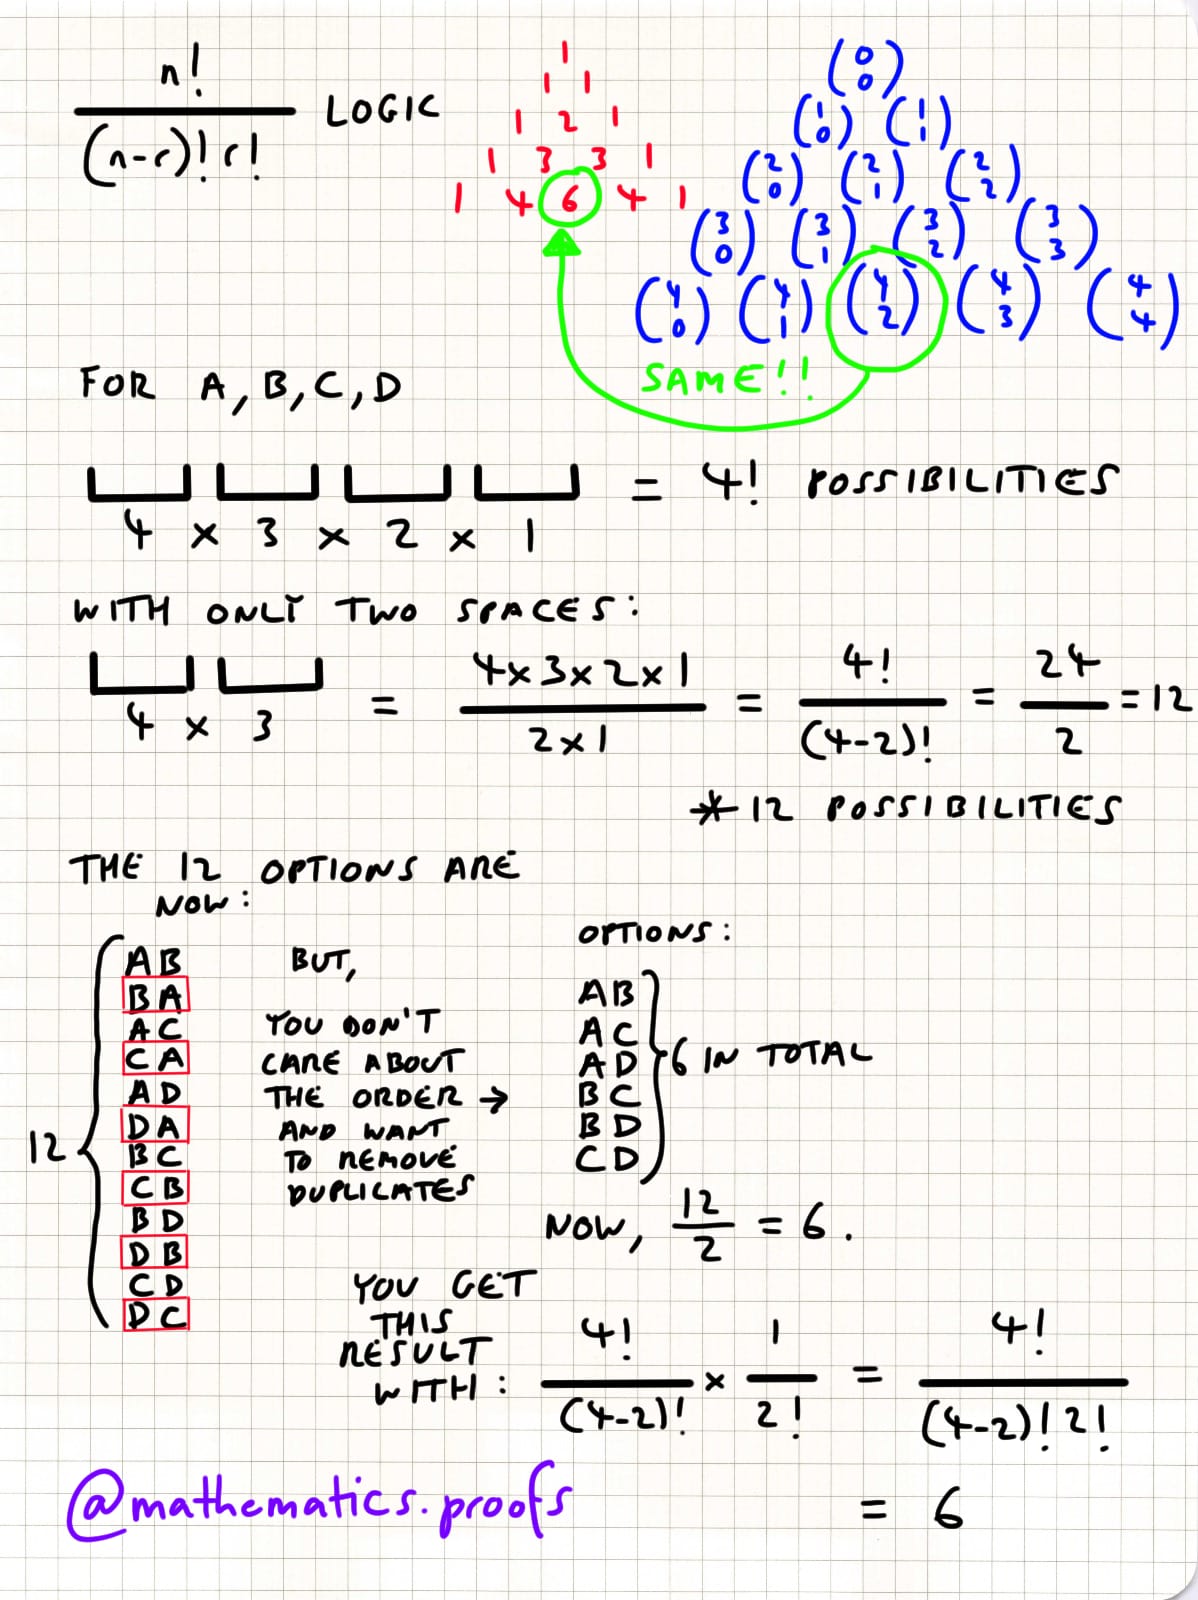 n!
(n-r)! r!
LOGIC
1
1 1
1 2 1
1 3 3 1
1 4 6 4 1
(0 0)
(1 0) (1 1)
(2 0) (2 1) (2 2)
(3 0) (3 1) (3 2) (3 3)
(4 0) (4 1) (4 2) (4 3) (4 4)
SAME!!
FOR A, B, C, D
4 x 3 x 2 x 1
= 4! POSSIBILITIES
WITH ONLY TWO SPACES:
4 x 3
= 4x3x2x1 / 2x1 = 4! / (4-2)! = 24 / 2 = 12
* 12 POSSIBILITIES
THE 12 OPTIONS ARE
NOW:
12
AB
BA
AC
CA
AD
DA
BC
CB
BD
DB
CD
DC
BUT,
YOU DON'T
CARE ABOUT
THE ORDER →
AND WANT
TO REMOVE
DUPLICATES
OPTIONS:
AB
AC
AD
BC
BD
CD
6 IN TOTAL
NOW, 12 / 2 = 6.
YOU GET
THIS
RESULT
WITH:
4! / (4-2)! x 1 / 2! = 4! / (4-2)! 2!
= 6
@mathematics.proofs